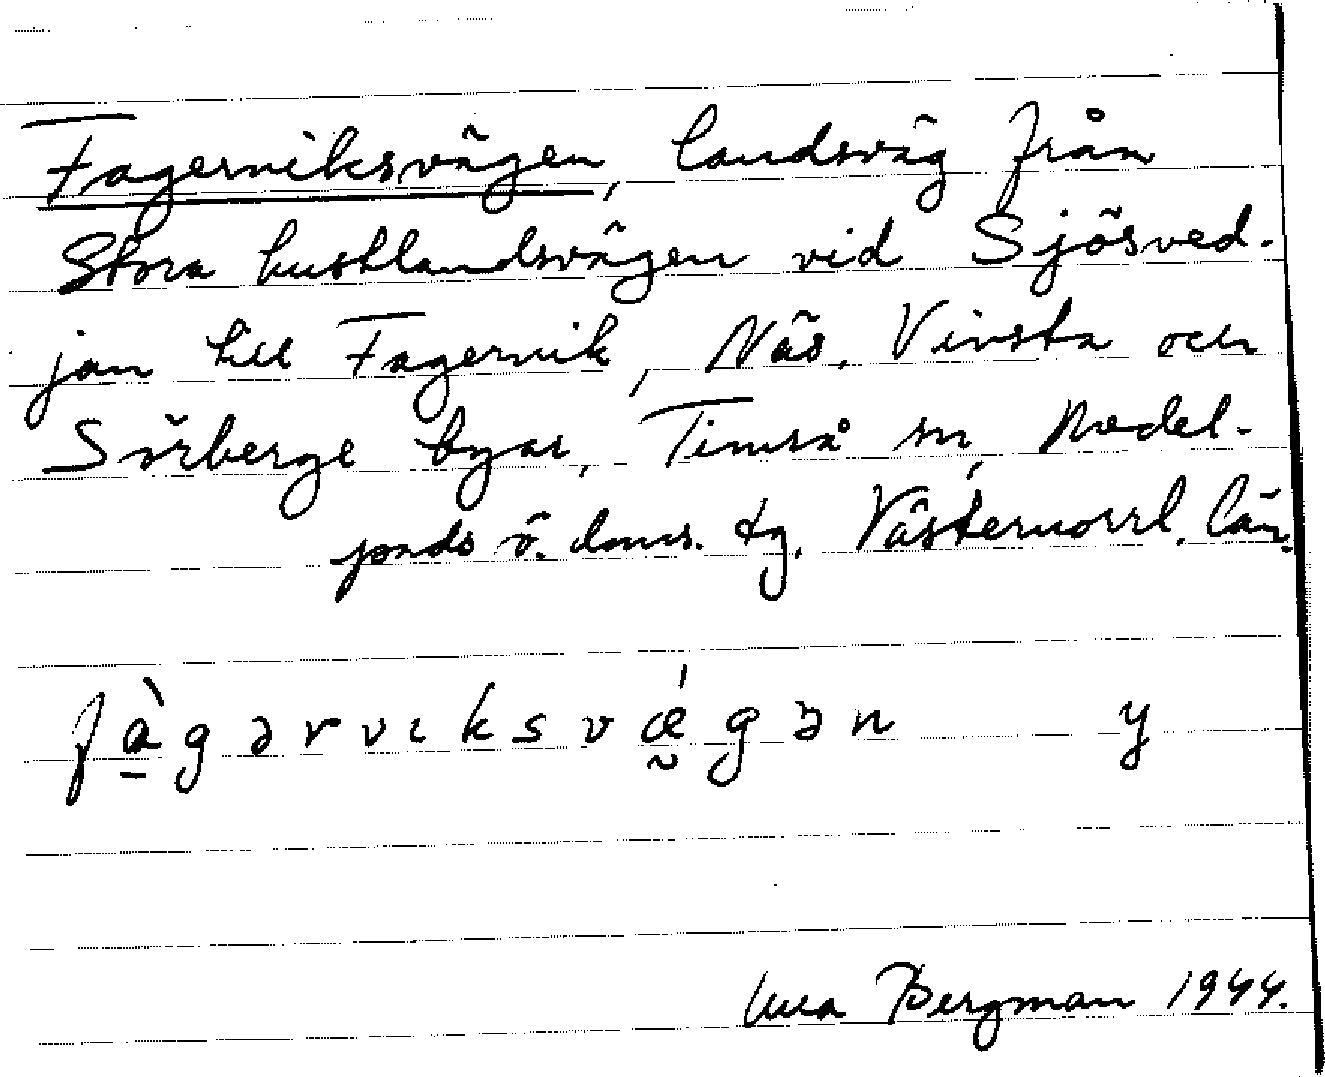 Fagerviksvägen, landsväg från
Stora kustlandsvägen vid Sjösved-
jan till Fagervik, Näs, Vivsta och
Sörberge byar, Timrå sn, Medel-
pads ö. doms. tg. Västernorrl. län.
fàgərvıksvǽgən y
Una Bergman 1944.